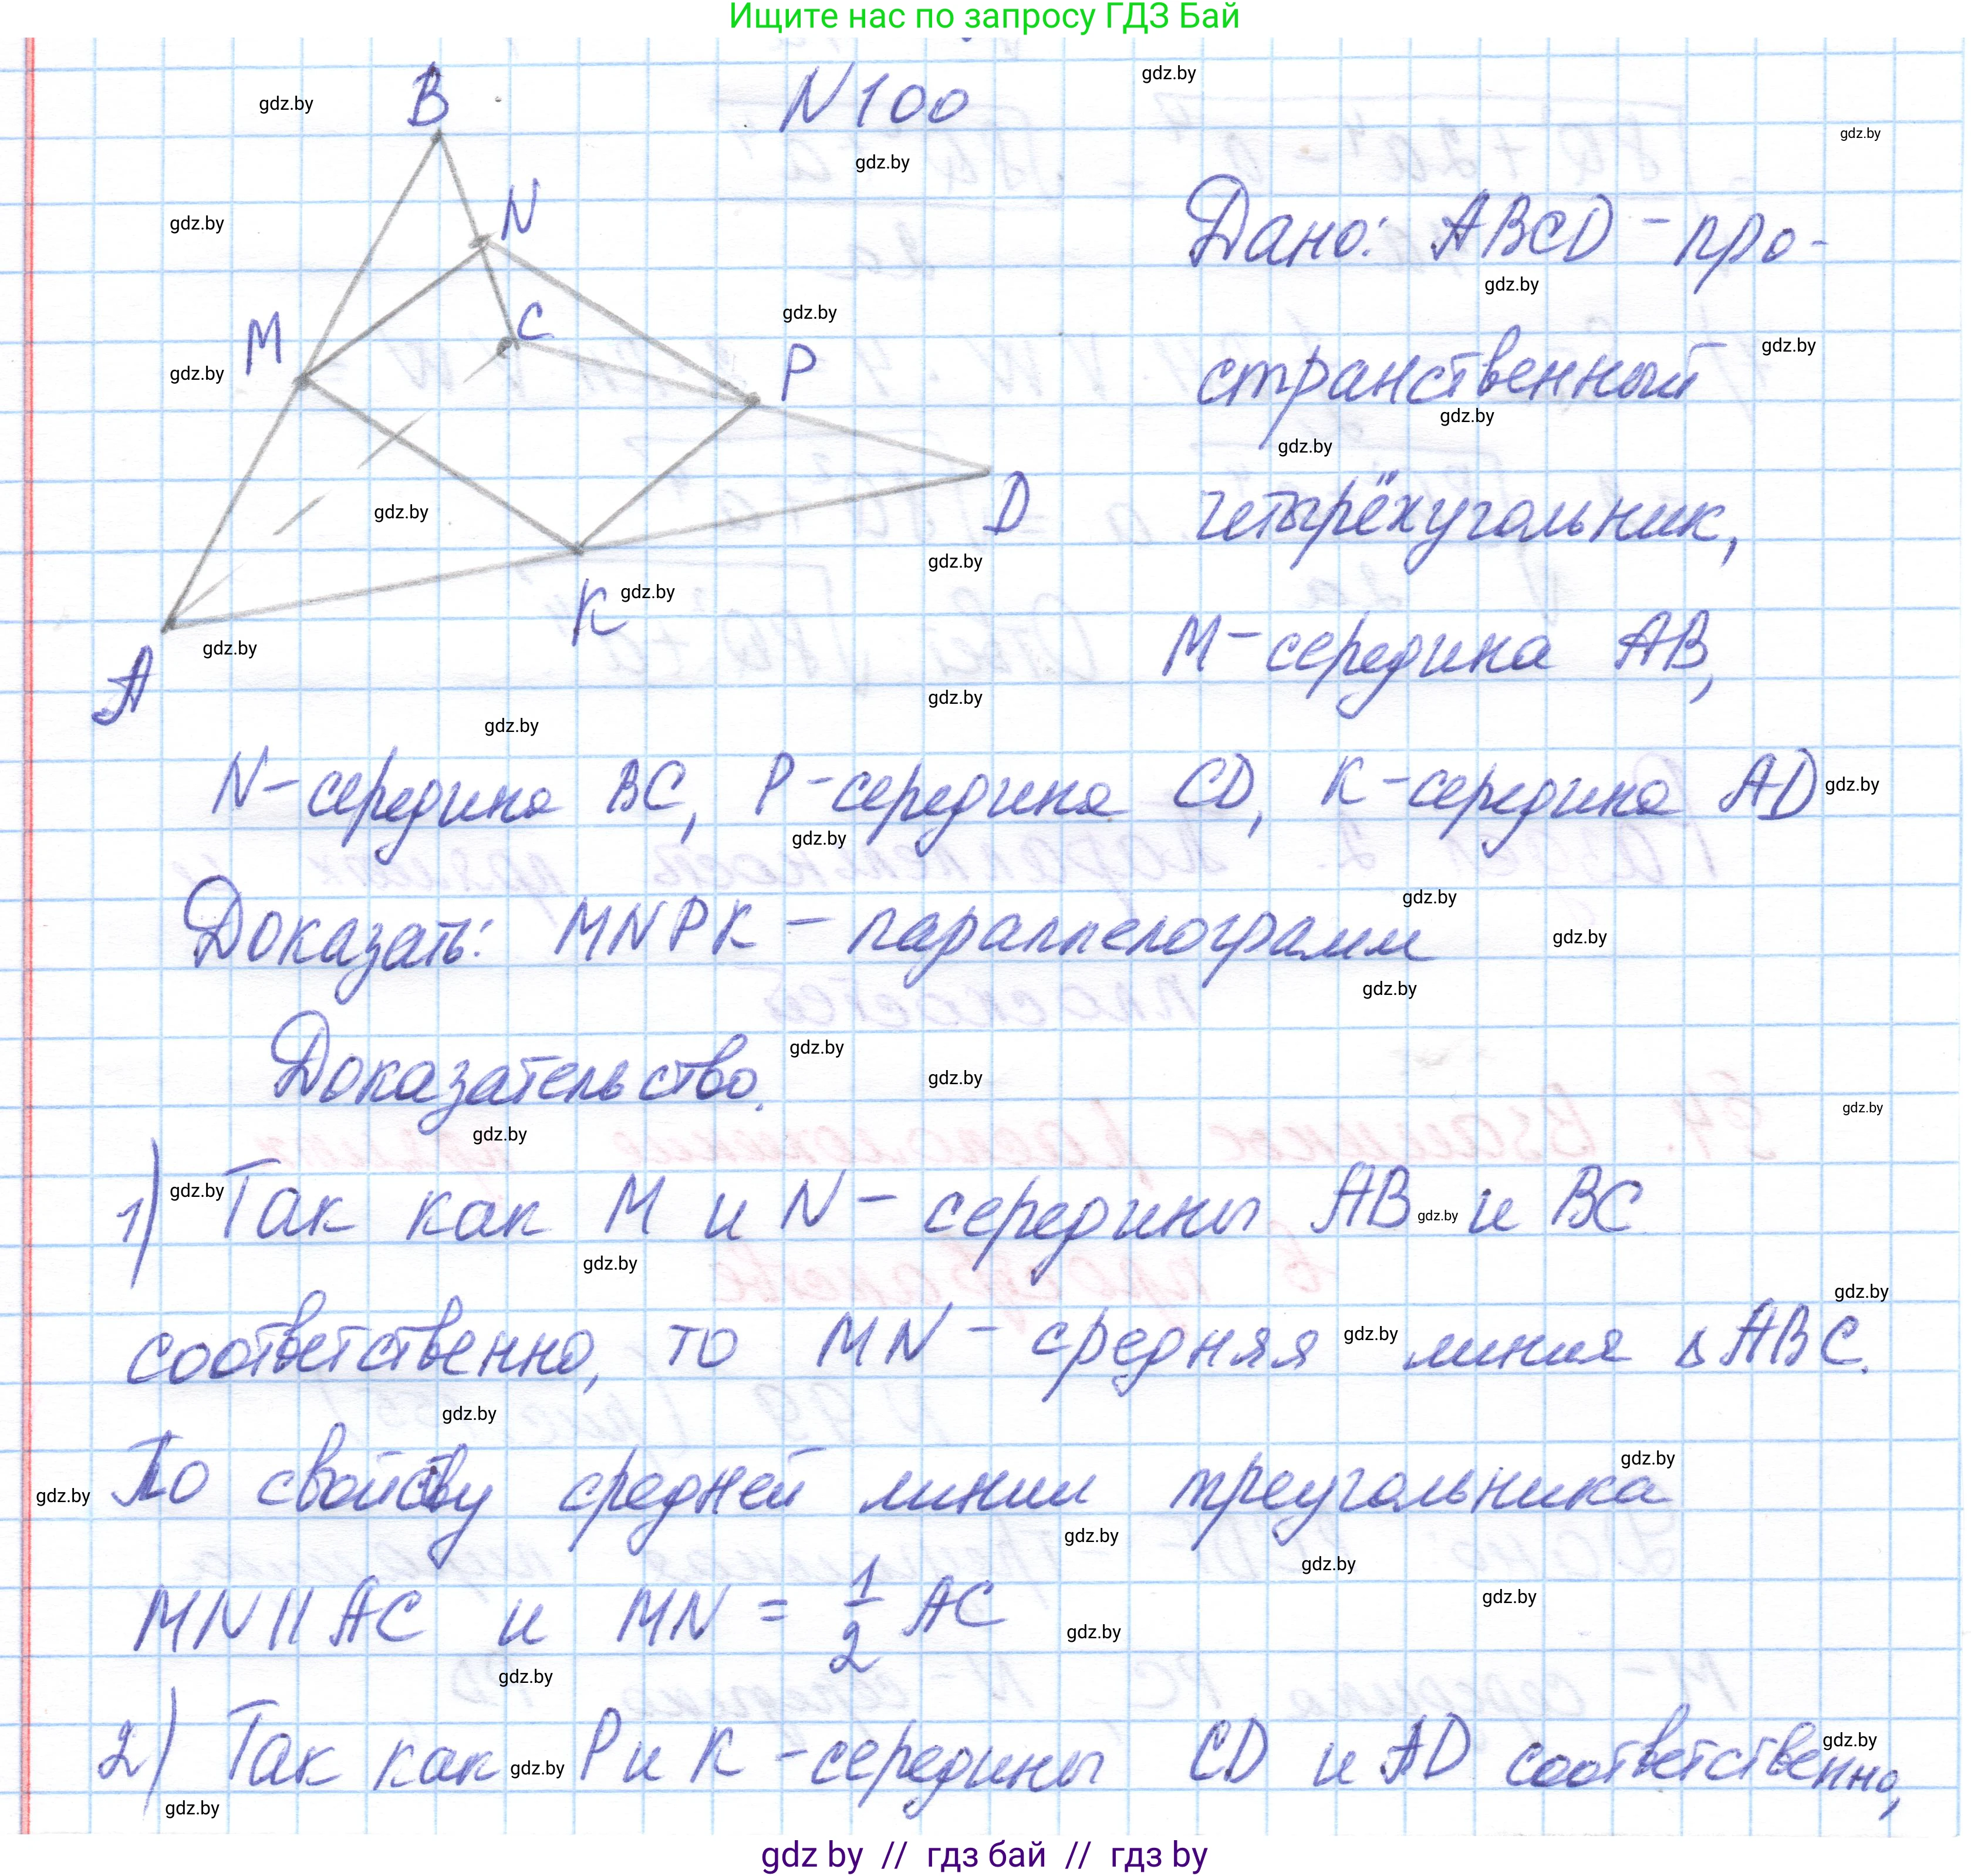 Ищите нас по запросу ГДЗ Бай
N100
B
N
C
M
P
D
K
A
Дано: ABCD - про-
странственный
четырёхугольник,
M - середина AB,
N - середина BC, P - середина CD, K - середина AD
Доказать: MNPK - параллелограмм
Доказательство.
1) Так как M и N - середины AB и BC
соответственно, то MN - средняя линия △ABC.
По свойству средней линии треугольника
MN || AC и MN = 1/2 AC
2) Так как P и K - середины CD и AD соответственно,
gdz by // гдз бай // гдз by